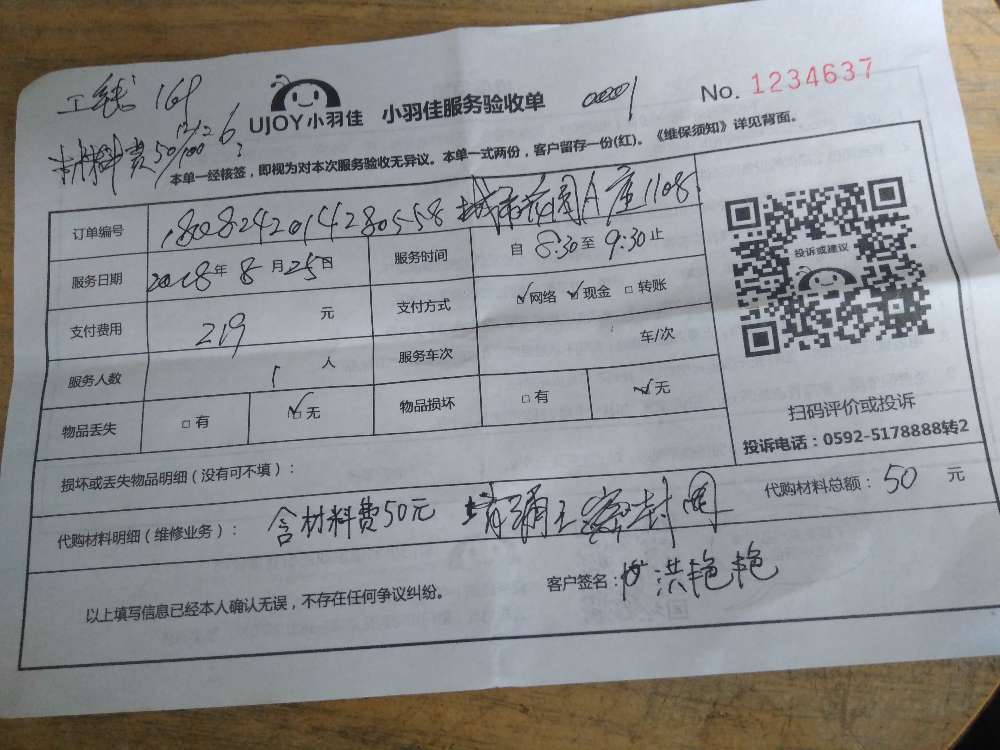 工钱 169
材料费50/100
UJOY小羽佳 小羽佳服务验收单
No. 1234637
本单一经核签，即视为对本次服务验收无异议。本单一式两份，客户留存一份(红)。《维保须知》详见背面。
订单编号 1808242014280558 城市花园A座1108
服务日期 2018年 8月25日 服务时间 自 8:30至 9:30止
支付费用 219 元 支付方式 网络 现金 转账
服务人数 1 人 服务车次 车/次
物品丢失 有 无 物品损坏 有 无
投诉或建议
扫码评价或投诉
投诉电话：0592-5178888转2
损坏或丢失物品明细（没有可不填）：
代购材料明细（维修业务）： 含材料费50元 密封圈
代购材料总额： 50 元
以上填写信息已经本人确认无误，不存在任何争议纠纷。
客户签名： 洪艳艳